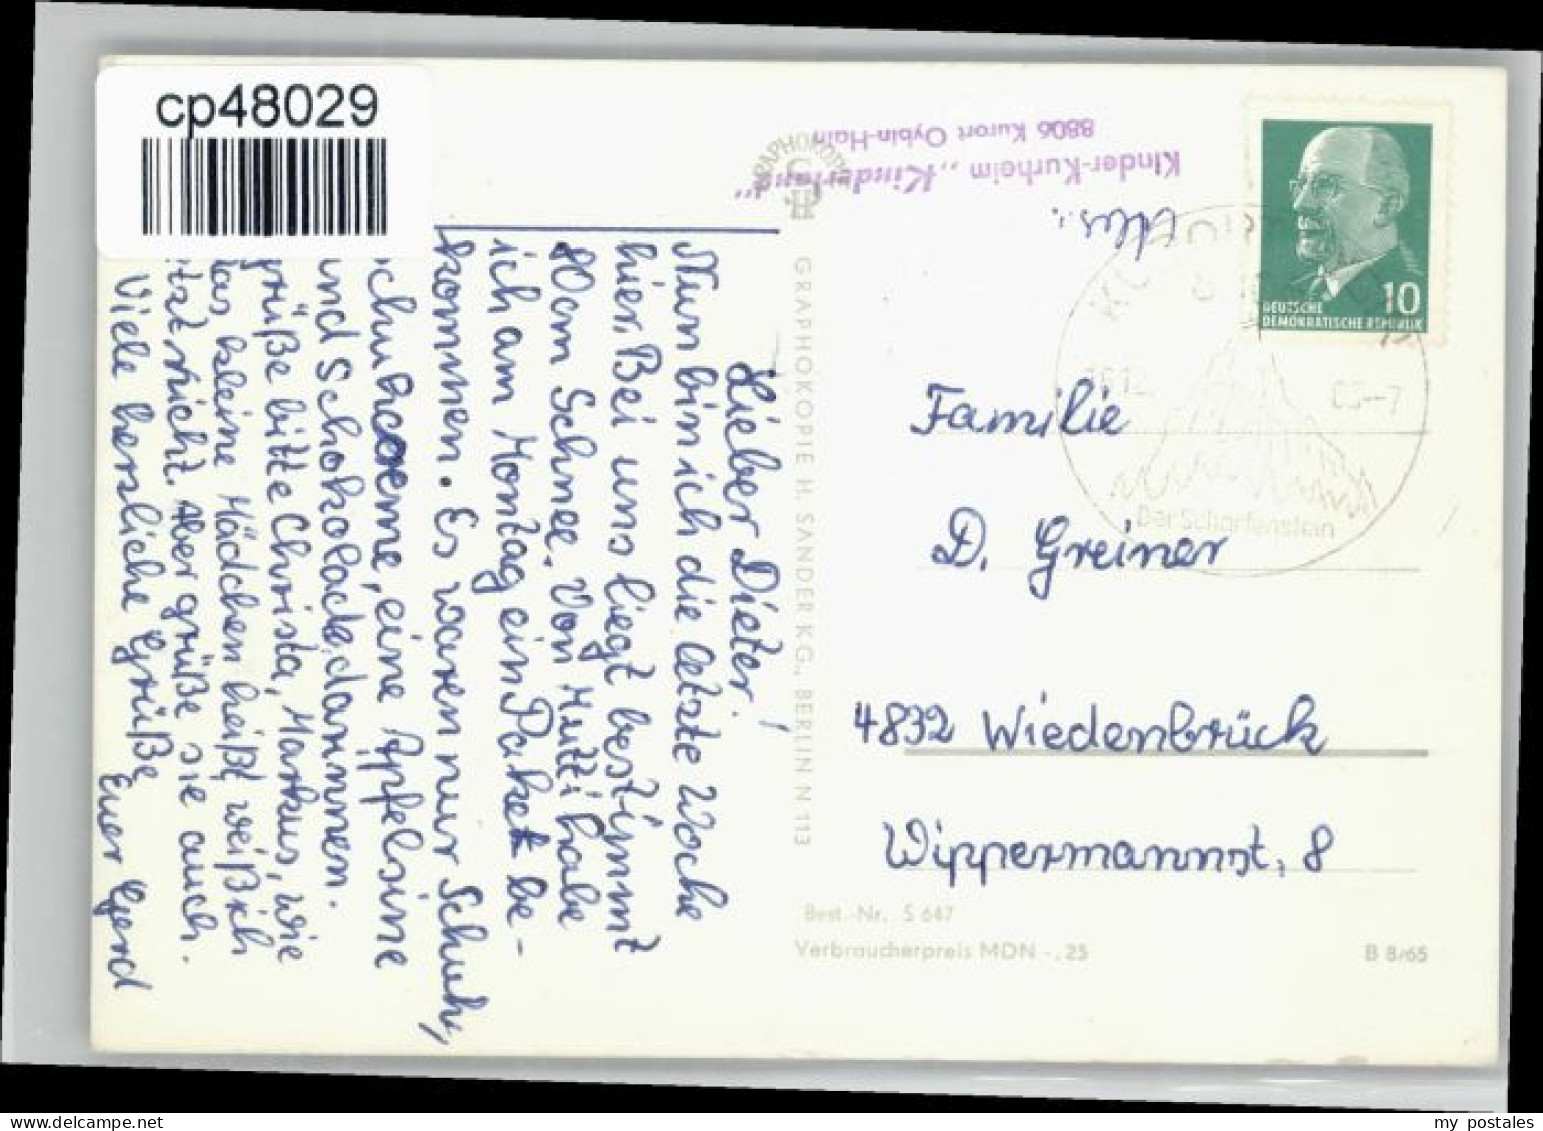 cp48029
Kinder-Kurheim „Kinderland“
8806 Kurort Oybin-Hain
GRAPHOKOPIE
DEUTSCHE
DEMOKRATISCHE REPUBLIK
10
KURORT OYBIN
16.12. 65--7
Der Scharfenstein
Lieber Dieter!
Nun bin ich die letzte Woche
hier. Bei uns liegt bestimmt
80 cm Schnee. Von Mutti habe
ich am Montag ein Paket be-
kommen. Es waren nur Schuh,
eine Apfelsine
und Schokolade
grüße bitte Christa, Markus, wie
das kleine Mädchen heißt, weiß ich
nicht. Aber grüße sie auch.
Viele herzliche Grüße
Euer Gerd
GRAPHOKOPIE H. SANDER KG., BERLIN N 113
Familie
D. Greiner
4832 Wiedenbrück
Wippermannst. 8
Best.-Nr. S 647
Verbraucherpreis MDN -,25
B 8/65
my postales
www.delcampe.net